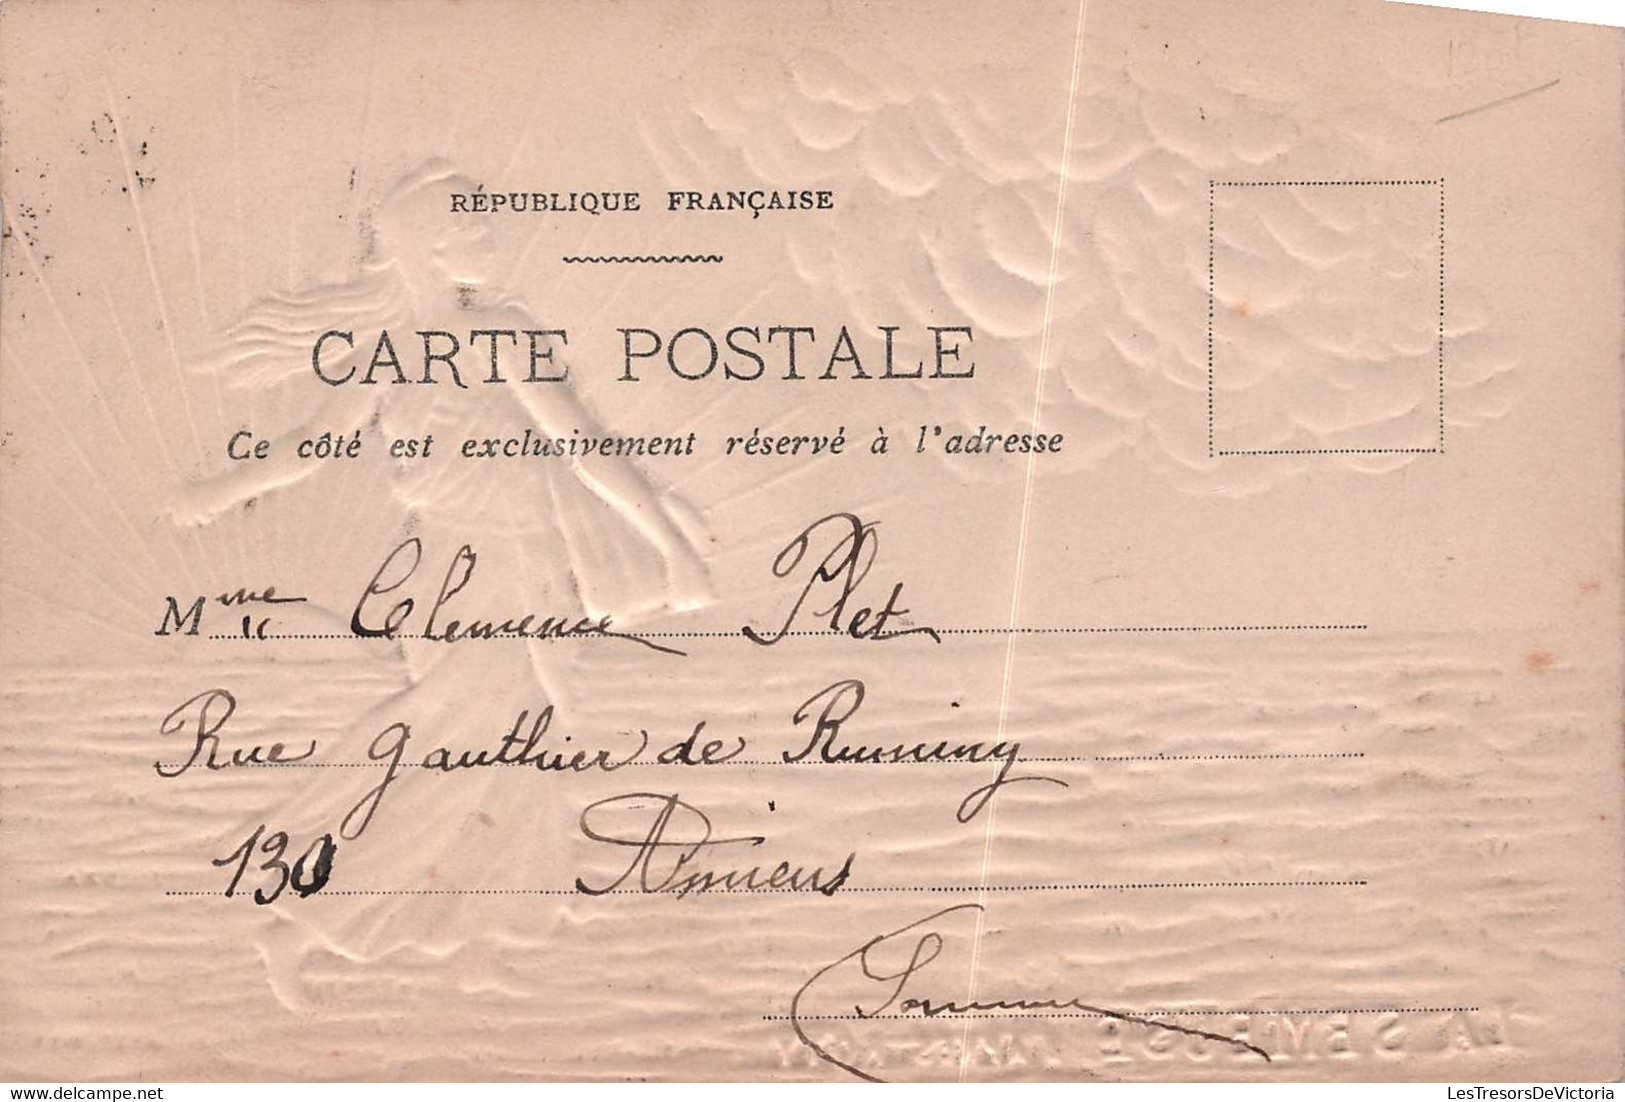 RÉPUBLIQUE FRANÇAISE
CARTE POSTALE
Ce côté est exclusivement réservé à l'adresse
Mme Clemence Plet
Rue Gauthier de Rumniny
130 Amiens
Somme
LA SEMEUSE
LesTresorsDeVictoria